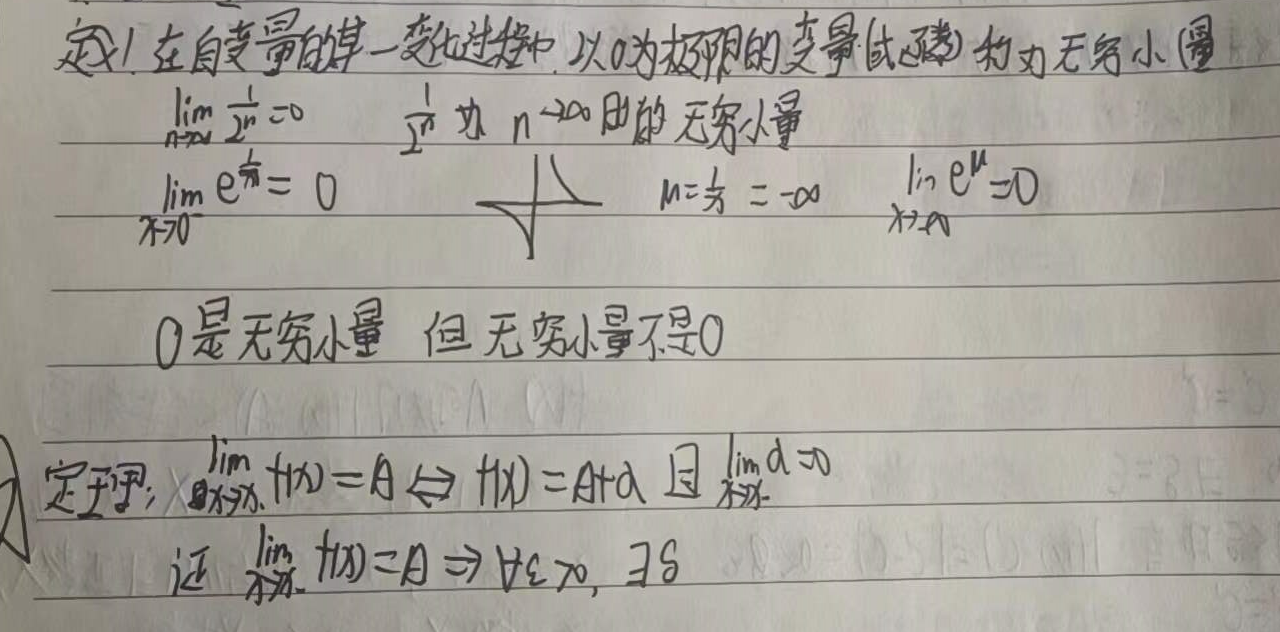 定义1 在自变量的某一变化过程中,以0为极限的变量(或函数)称为无穷小(量
lim n→∞ 1/2ⁿ = 0 1/2ⁿ 为 n→∞ 时的无穷小量
lim x→0⁻ e^(1/x) = 0 u = 1/x = -∞ lim x→-∞ e^u = 0
0是无穷小量 但无穷小量不是0
定理: lim x→x₀ f(x) = A ⇔ f(x) = A+α 且 lim x→x₀ α = 0
证 lim x→x₀ f(x) = A ⇐ ∀ε>0, ∃δ